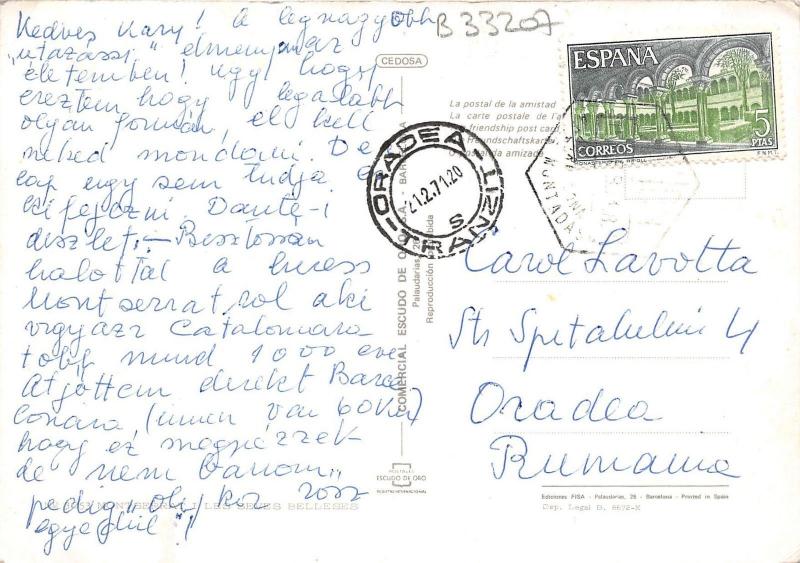 B 33207
Kedves Kary! A legnagyobb
"utazási" élmény az
életemben! Úgy hogy
éreztem hogy legalább
olyan formán, el kell
neked mondani. De
lap úgy sem tudja
kifejezni. Dante-i
díszlet. – Bizt
hallottál a híres
Montserrat, ról aki
vigyázz Catalonára
több mind 1000 éve
Átjöttem direkt Barce
lonára, (innen van 60 km)
hogy ez megnézzek
de nem bánom,,
pedig olykor rossz
egyedül"!
CEDOSA
La postal de la amistad
La carte postale de l'a
friendship post card
Freundschaftskarte
postal da amizade
COMERCIAL ESCUDO DE ORO, S.A. - BAR
Palaudarias, 26
Reproducción prohibida
ESPAÑA
5
PTAS
CORREOS
F.N.M.T.
ORADEA
TRANZIT
21.2.71.20
S
MONTADA
Carol Lavotta
Str Spitalului 4
Oradea
Rumania
POSTALES
ESCUDO DE ORO
REGISTRO INTERNACIONAL
MONTSERRAT LES SEVES BELLESES
Ediciones FISA - Palaudarias, 26 - Barcelona - Printed in Spain
Dep. Legal B. 6672-X